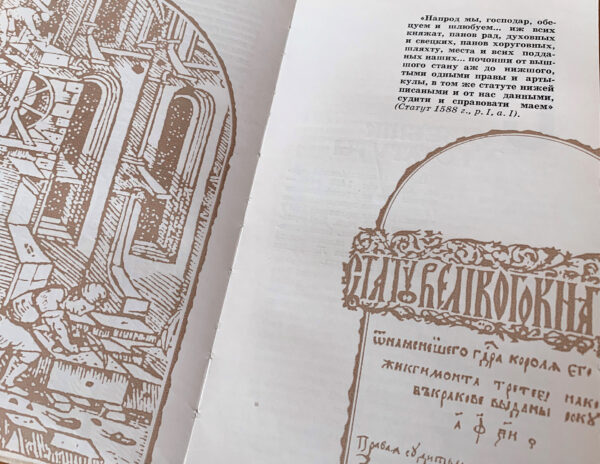 «Напрод мы, господар, обе-
цуем и шлюбуем... иж всих
княжат, панов рад, духовных
и свецких, панов хоруговных,
шляхту, места и всих подда-
ных наших... почонши от выш-
шого стану аж до нижшого,
тыми одными правы и арты-
кулы, в том же статуте нижей
писаными и от нас данными,
судити и справовати маем»
(Статут 1588 г., р. I, а. I).
СТАТУ ВЕЛИКОГО КНА
ѿнаменешего гдра короля его
жикгимонта третего
въкракове выданы року
а ф пи
Правая судити